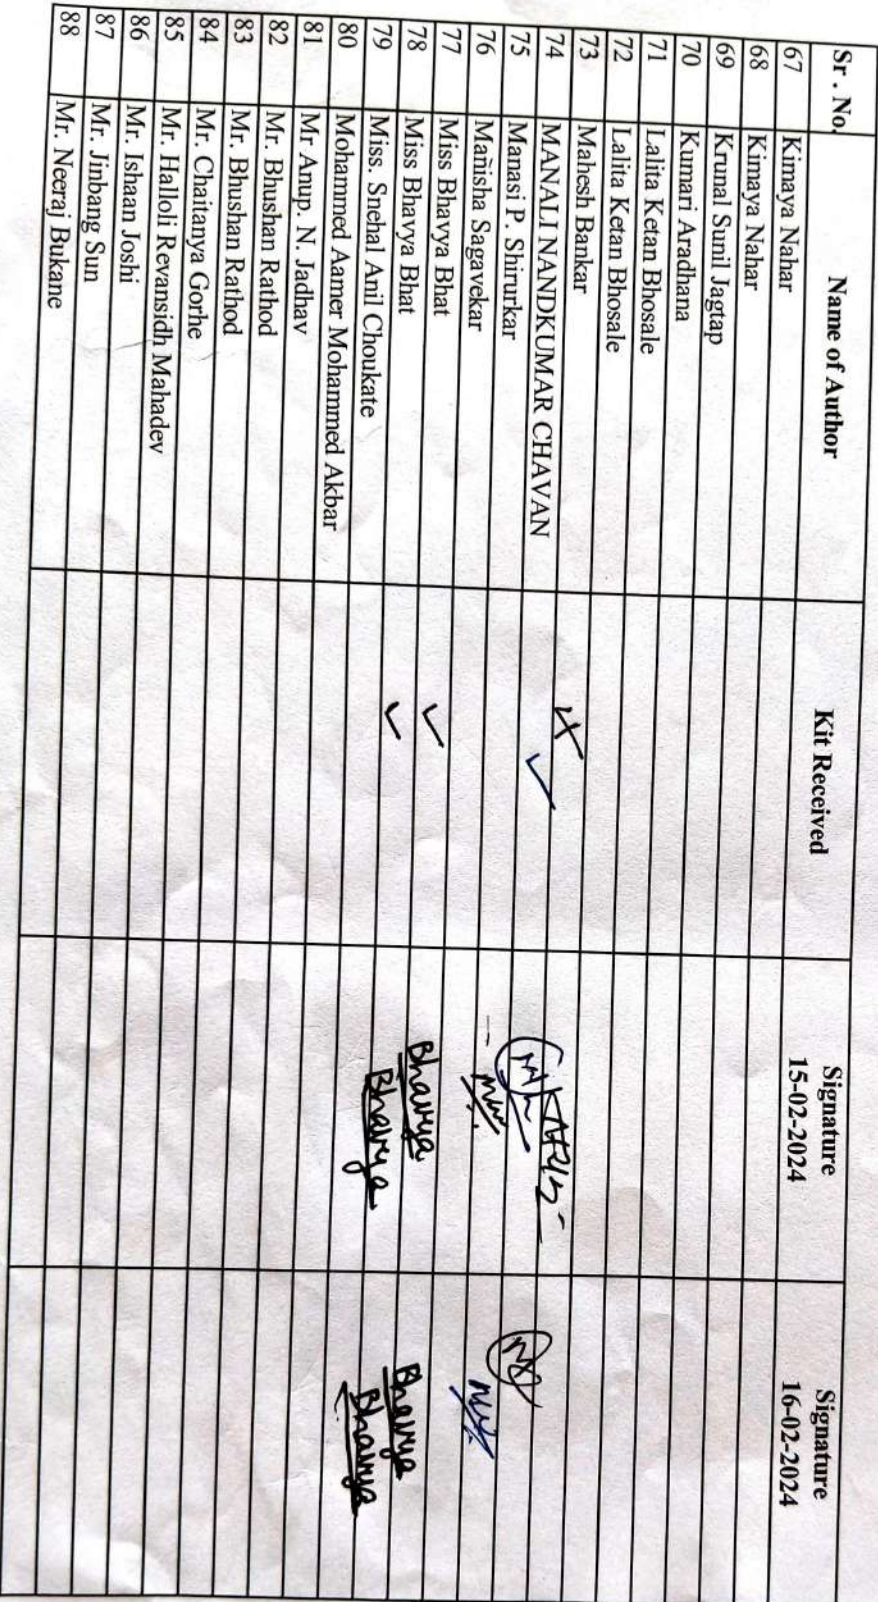 Sr . No. Name of Author Kit Received Signature 15-02-2024 Signature 16-02-2024
67 Kimaya Nahar
68 Kimaya Nahar
69 Krunal Sunil Jagtap
70 Kumari Aradhana
71 Lalita Ketan Bhosale
72 Lalita Ketan Bhosale
73 Mahesh Bankar
74 MANALI NANDKUMAR CHAVAN
75 Manasi P. Shirurkar
76 Manisha Sagavekar
77 Miss Bhavya Bhat ✓ Bhavya Bhavya
78 Miss Bhavya Bhat ✓ Bhavya Bhavya
79 Miss. Snehal Anil Choukate
80 Mohammed Aamer Mohammed Akbar
81 Mr Anup. N. Jadhav
82 Mr. Bhushan Rathod
83 Mr. Bhushan Rathod
84 Mr. Chaitanya Gorhe
85 Mr. Halloli Revansidh Mahadev
86 Mr. Ishaan Joshi
87 Mr. Jinbang Sun
88 Mr. Neeraj Bukane